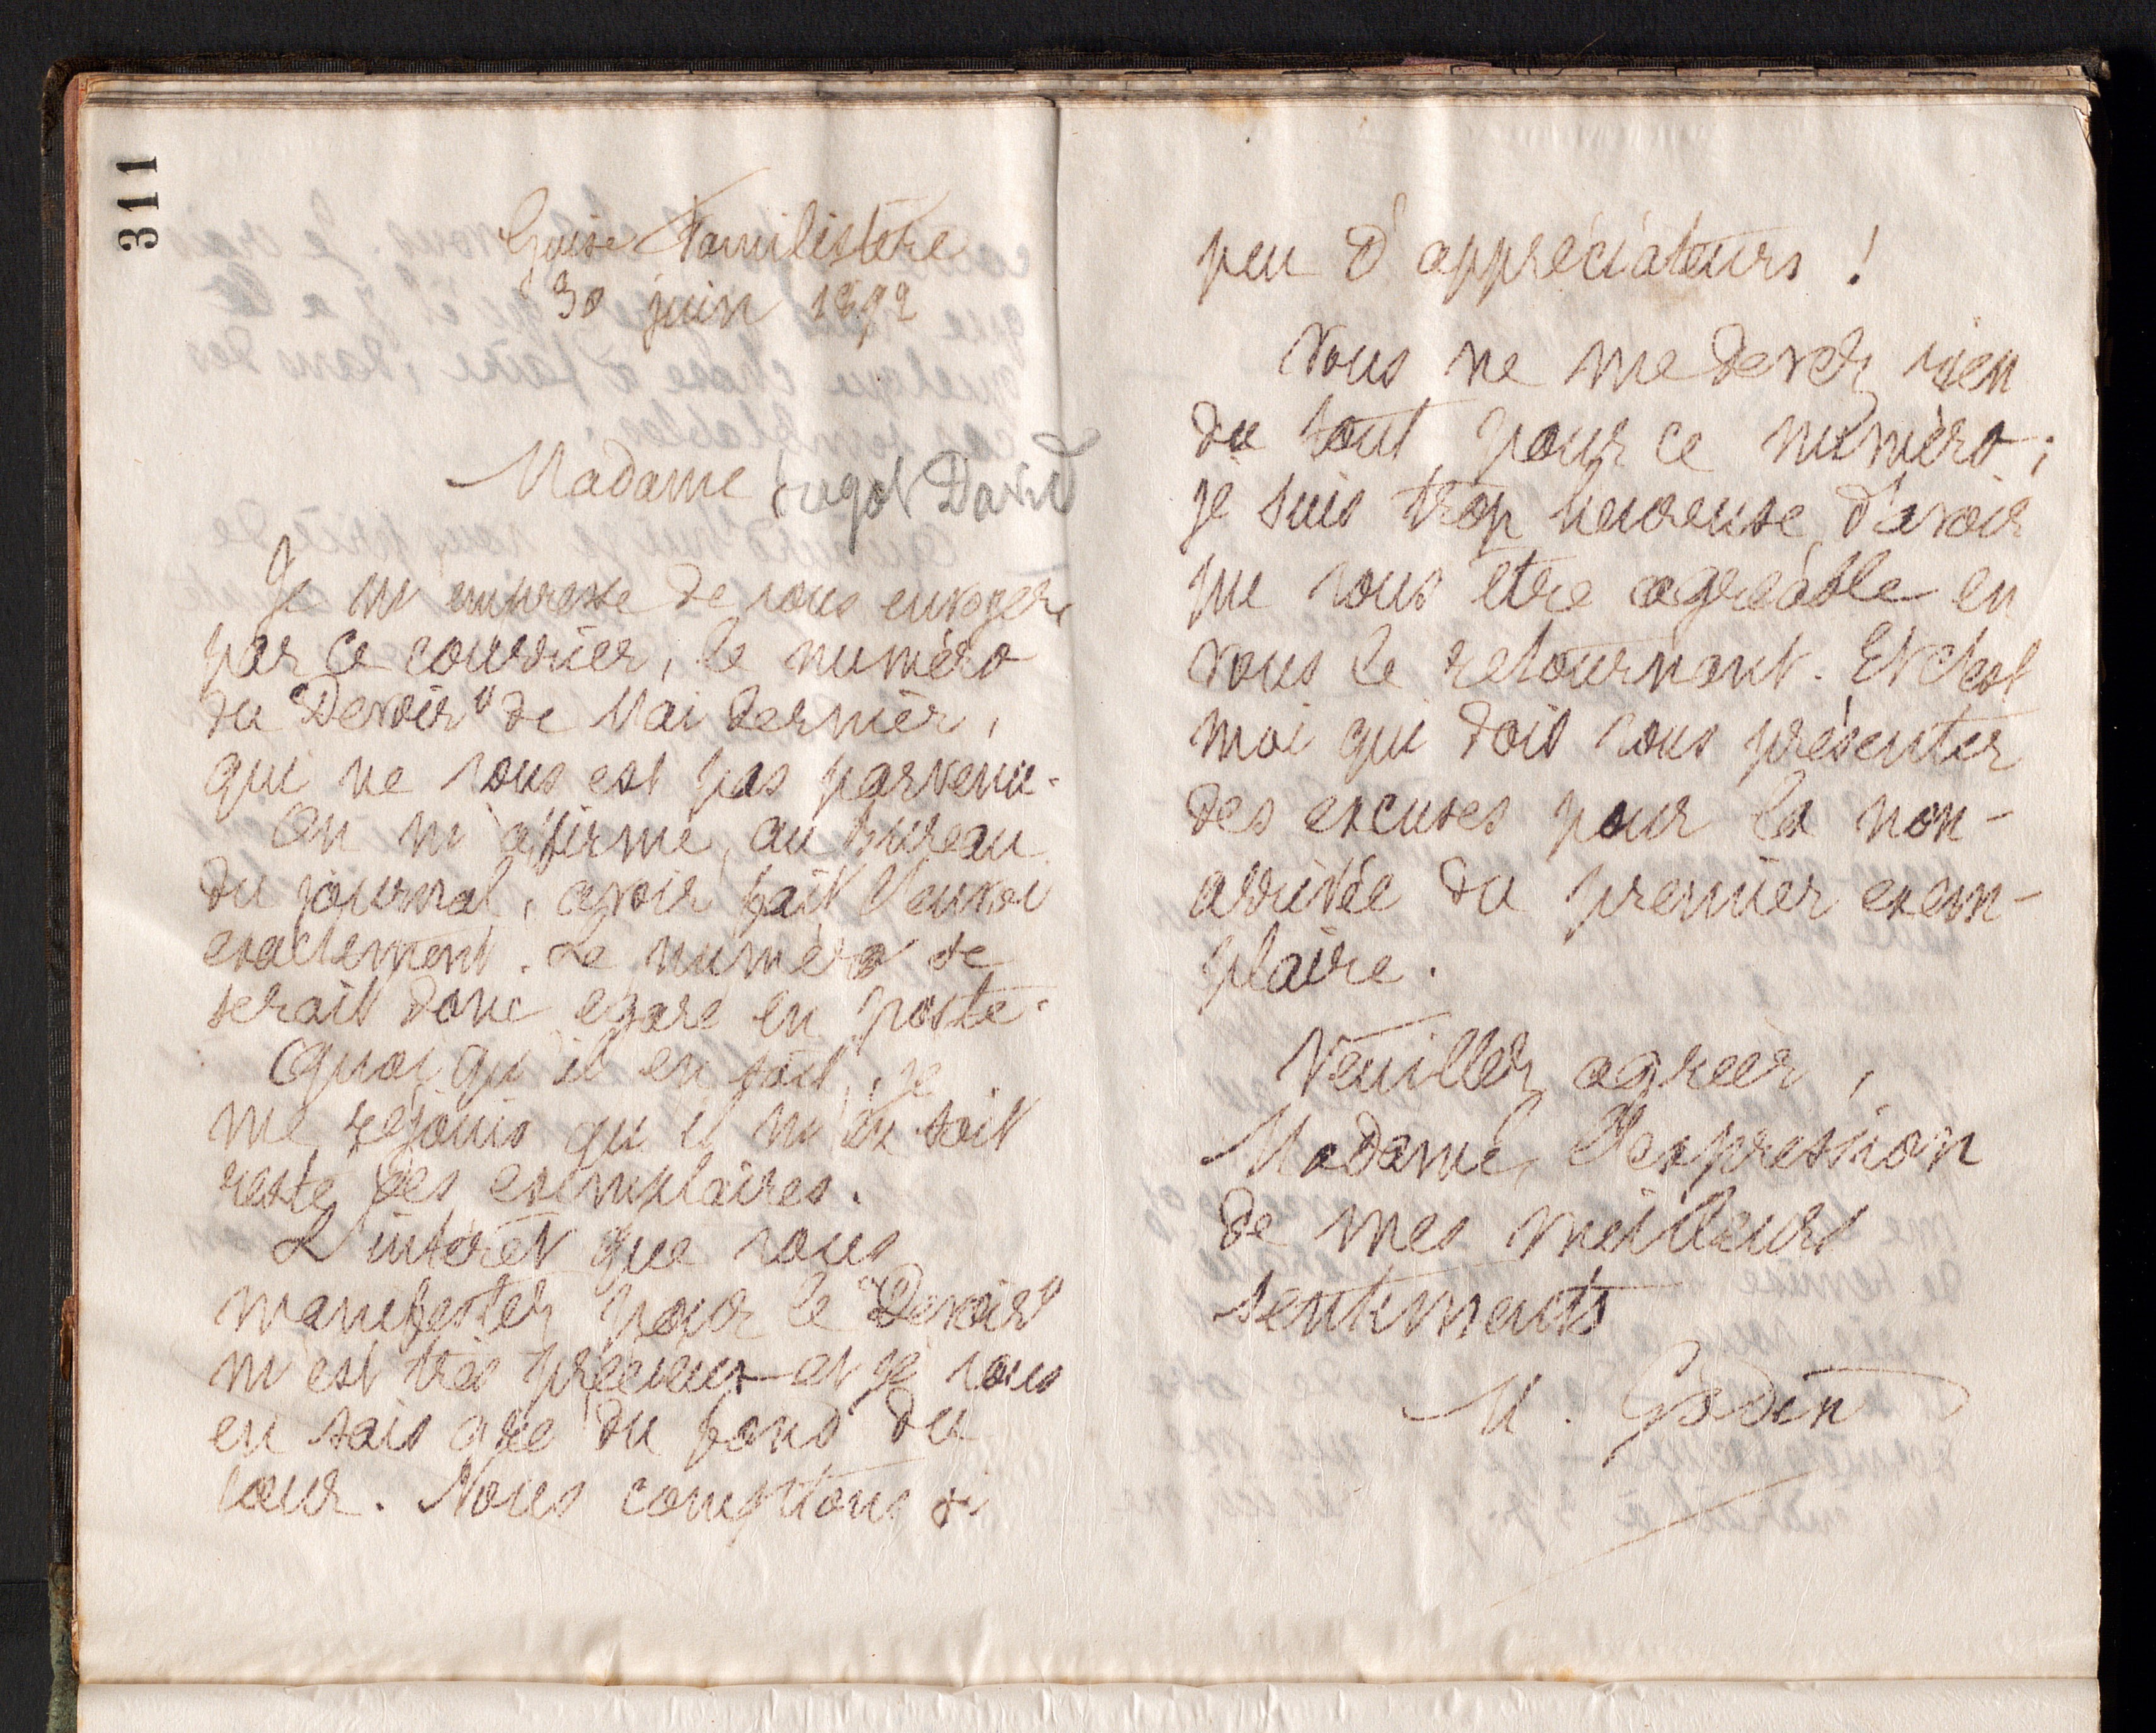 311
Guise Familistère
30 juin 1892
Madame Fugot David
Je m'empresse de vous envoyer,
par ce courrier, le numéro
du "Devoir" de Mai dernier,
qui ne vous est pas parvenu.
On m'affirme, au bureau
du journal, avoir fait l'envoi
exactement. Le numéro se
serait donc égaré en poste.
Quoi qu'il en soit, je
me réjouis qu'il m'en soit
resté des exemplaires.
L'intérêt que vous
manifestez pour le "Devoir"
m'est très précieux et je vous
en sais gré du fond du
cœur. Nous comptons si
peu d'appréciateurs !
Vous ne me devez rien
du tout pour ce numéro ;
je suis trop heureuse d'avoir
pu vous être agréable en
vous le retournant. Et c'est
moi qui dois vous présenter
des excuses pour la non-
arrivée du premier exem-
plaire.
Veuillez agréer,
Madame, l'expression
de mes meilleurs
sentiments
M. Godin